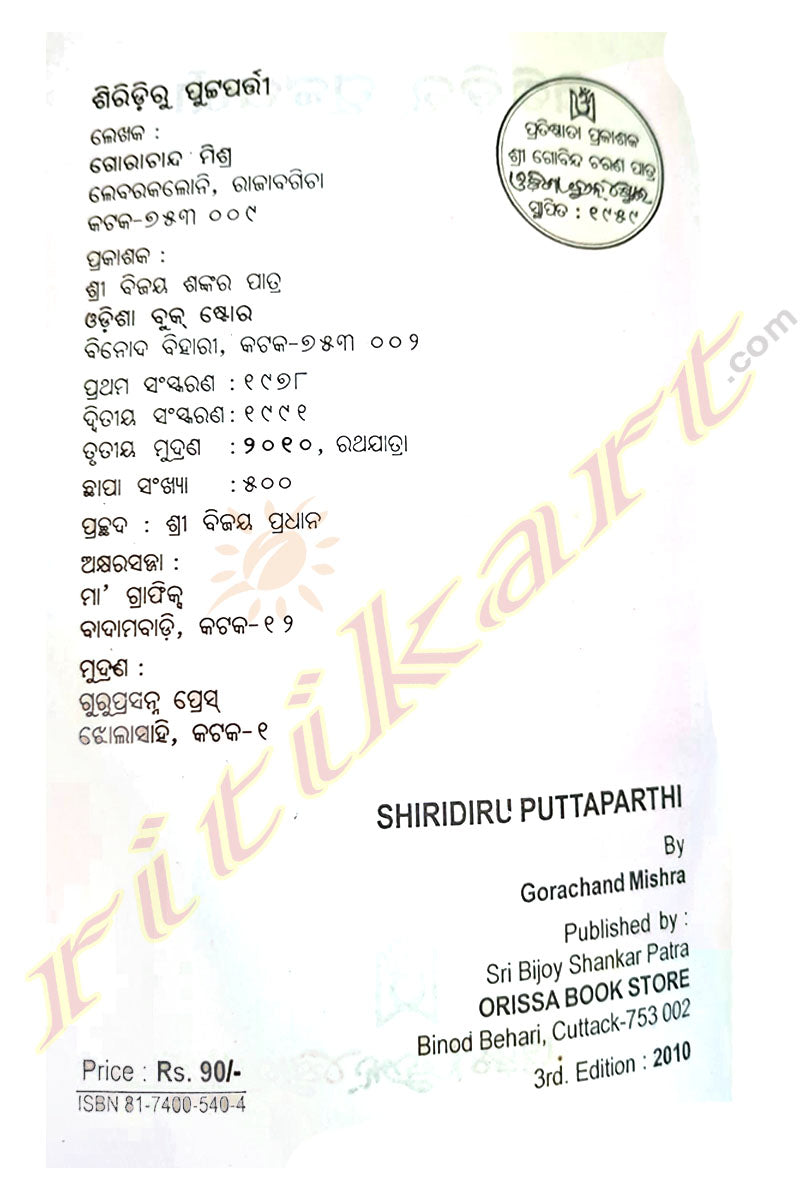 ଶିରିଡ଼ିରୁ ପୁଟ୍ଟପର୍ତ୍ତୀ
ଲେଖକ :
ଗୋରାଚାନ୍ଦ ମିଶ୍ର
ଲେବରକଲୋନି, ରାଜାବଗିଚା
କଟକ-୭୫୩ ୦୦୯
ପ୍ରକାଶକ :
ଶ୍ରୀ ବିଜୟ ଶଙ୍କର ପାତ୍ର
ଓଡ଼ିଶା ବୁକ୍ ଷ୍ଟୋର
ବିନୋଦ ବିହାରୀ, କଟକ-୭୫୩ ୦୦୨
ପ୍ରଥମ ସଂସ୍କରଣ : ୧୯୭୮
ଦ୍ୱିତୀୟ ସଂସ୍କରଣ : ୧୯୯୧
ତୃତୀୟ ମୁଦ୍ରଣ : ୨୦୧୦, ରଥଯାତ୍ରା
ଛାପା ସଂଖ୍ୟା : ୫୦୦
ପ୍ରଚ୍ଛଦ : ଶ୍ରୀ ବିଜୟ ପ୍ରଧାନ
ଅକ୍ଷରସଜା :
ମା' ଗ୍ରାଫିକ୍ସ
ବାଦାମବାଡ଼ି, କଟକ-୧୨
ମୁଦ୍ରଣ :
ଗୁରୁପ୍ରସନ୍ନ ପ୍ରେସ୍
ଝୋଲାସାହି, କଟକ-୧
ପ୍ରତିଷ୍ଠାତା ପ୍ରକାଶକ
ଶ୍ରୀ ଗୋବିନ୍ଦ ଚରଣ ପାତ୍ର
ଓଡ଼ିଶା ବୁକ୍ ଷ୍ଟୋର
ସ୍ଥାପିତ : ୧୯୫୯
ritikart.com
SHIRIDIRU PUTTAPARTHI
By
Gorachand Mishra
Published by :
Sri Bijoy Shankar Patra
ORISSA BOOK STORE
Binod Behari, Cuttack-753 002
3rd. Edition : 2010
Price : Rs. 90/-
ISBN 81-7400-540-4